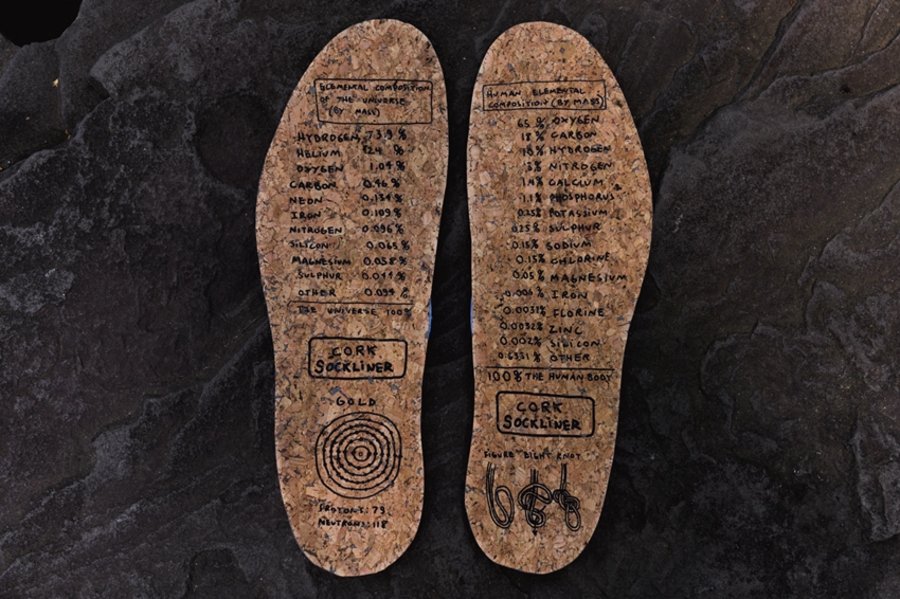 ELEMENTAL COMPOSITION
OF THE UNIVERSE
(BY MASS)
HYDROGEN 73.9 %
HELIUM 24 %
OXYGEN 1.04 %
CARBON 0.46 %
NEON 0.134 %
IRON 0.109 %
NITROGEN 0.096 %
SILICON 0.065 %
MAGNESIUM 0.058 %
SULPHUR 0.044 %
OTHER 0.094 %
THE UNIVERSE 100%
CORK
SOCKLINER
GOLD
PROTONS: 79
NEUTRONS: 118
HUMAN ELEMENTAL
COMPOSITION (BY MASS)
65 % OXYGEN
18 % CARBON
10 % HYDROGEN
3 % NITROGEN
1.4 % CALCIUM
1.1 % PHOSPHORUS
0.25 % POTASSIUM
0.25 % SULPHUR
0.15 % SODIUM
0.15 % CHLORINE
0.05 % MAGNESIUM
0.006 % IRON
0.0037% FLORINE
0.0032% ZINC
0.002% SILICON
0.6331 % OTHER
100% THE HUMAN BODY
CORK
SOCKLINER
FIGURE EIGHT KNOT